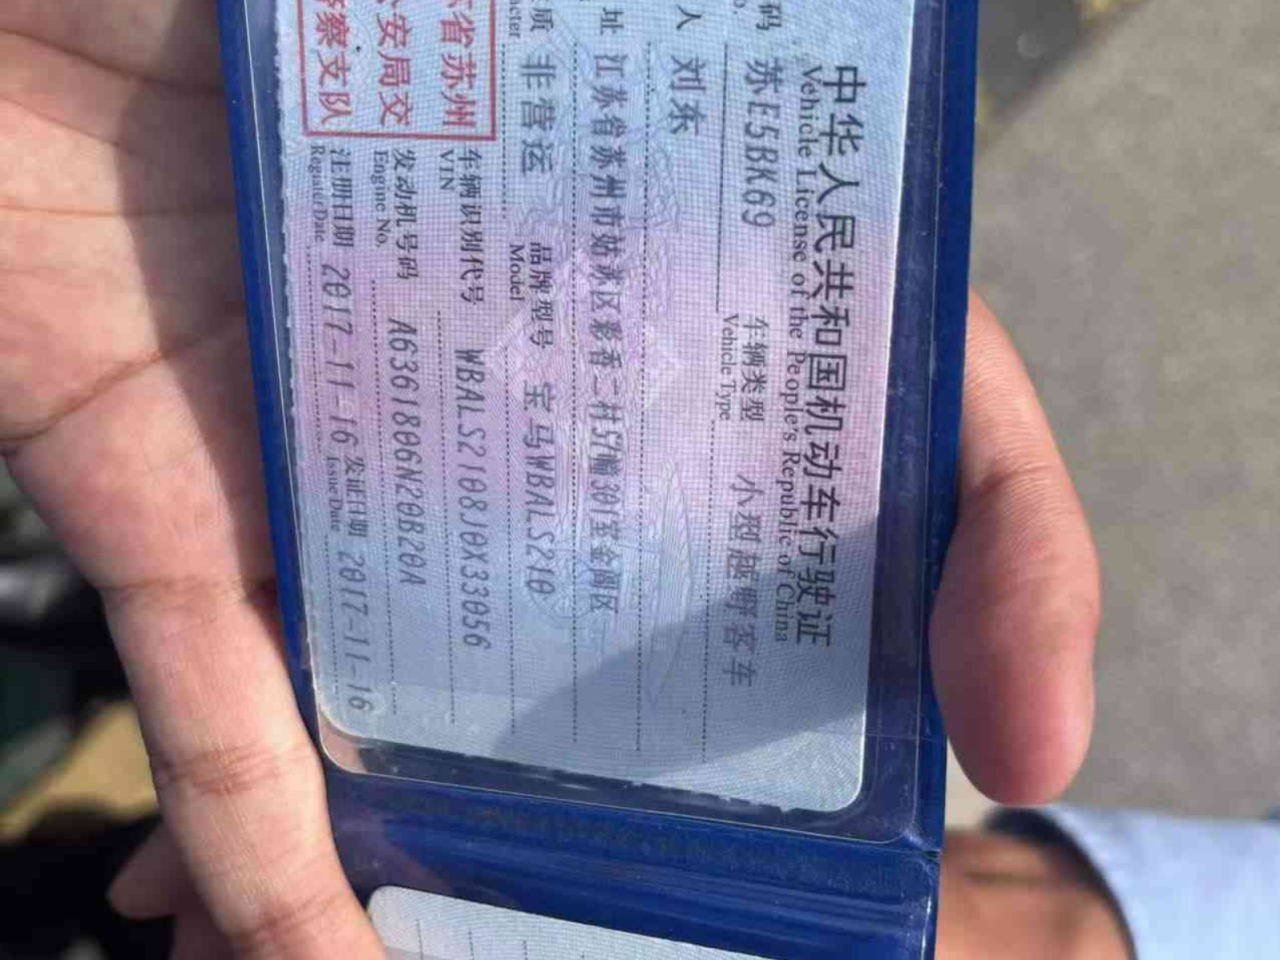 中华人民共和国机动车行驶证
Vehicle License of the People's Republic of China
码 苏E5BK69 车辆类型 小型越野客车
No. Vehicle Type
人 刘东
址 江苏省苏州市姑苏区彩香二村57幢301室金阊区
质 非营运 品牌型号 宝马WBALS210
acter Model
省苏州 车辆识别代号 WBALS2108J0X33056
VIN
安局交 发动机号码 A6361806N20B20A
Engine No.
察支队 注册日期 2017-11-16 发证日期 2017-11-16
Register Date Issue Date